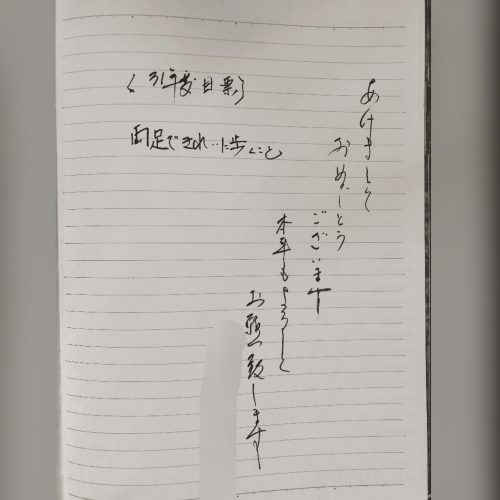 あけまして
おめでとう
ございます
本年もよろしく
お願い致します
〈31年度目票〉
両足できれいに歩くこと